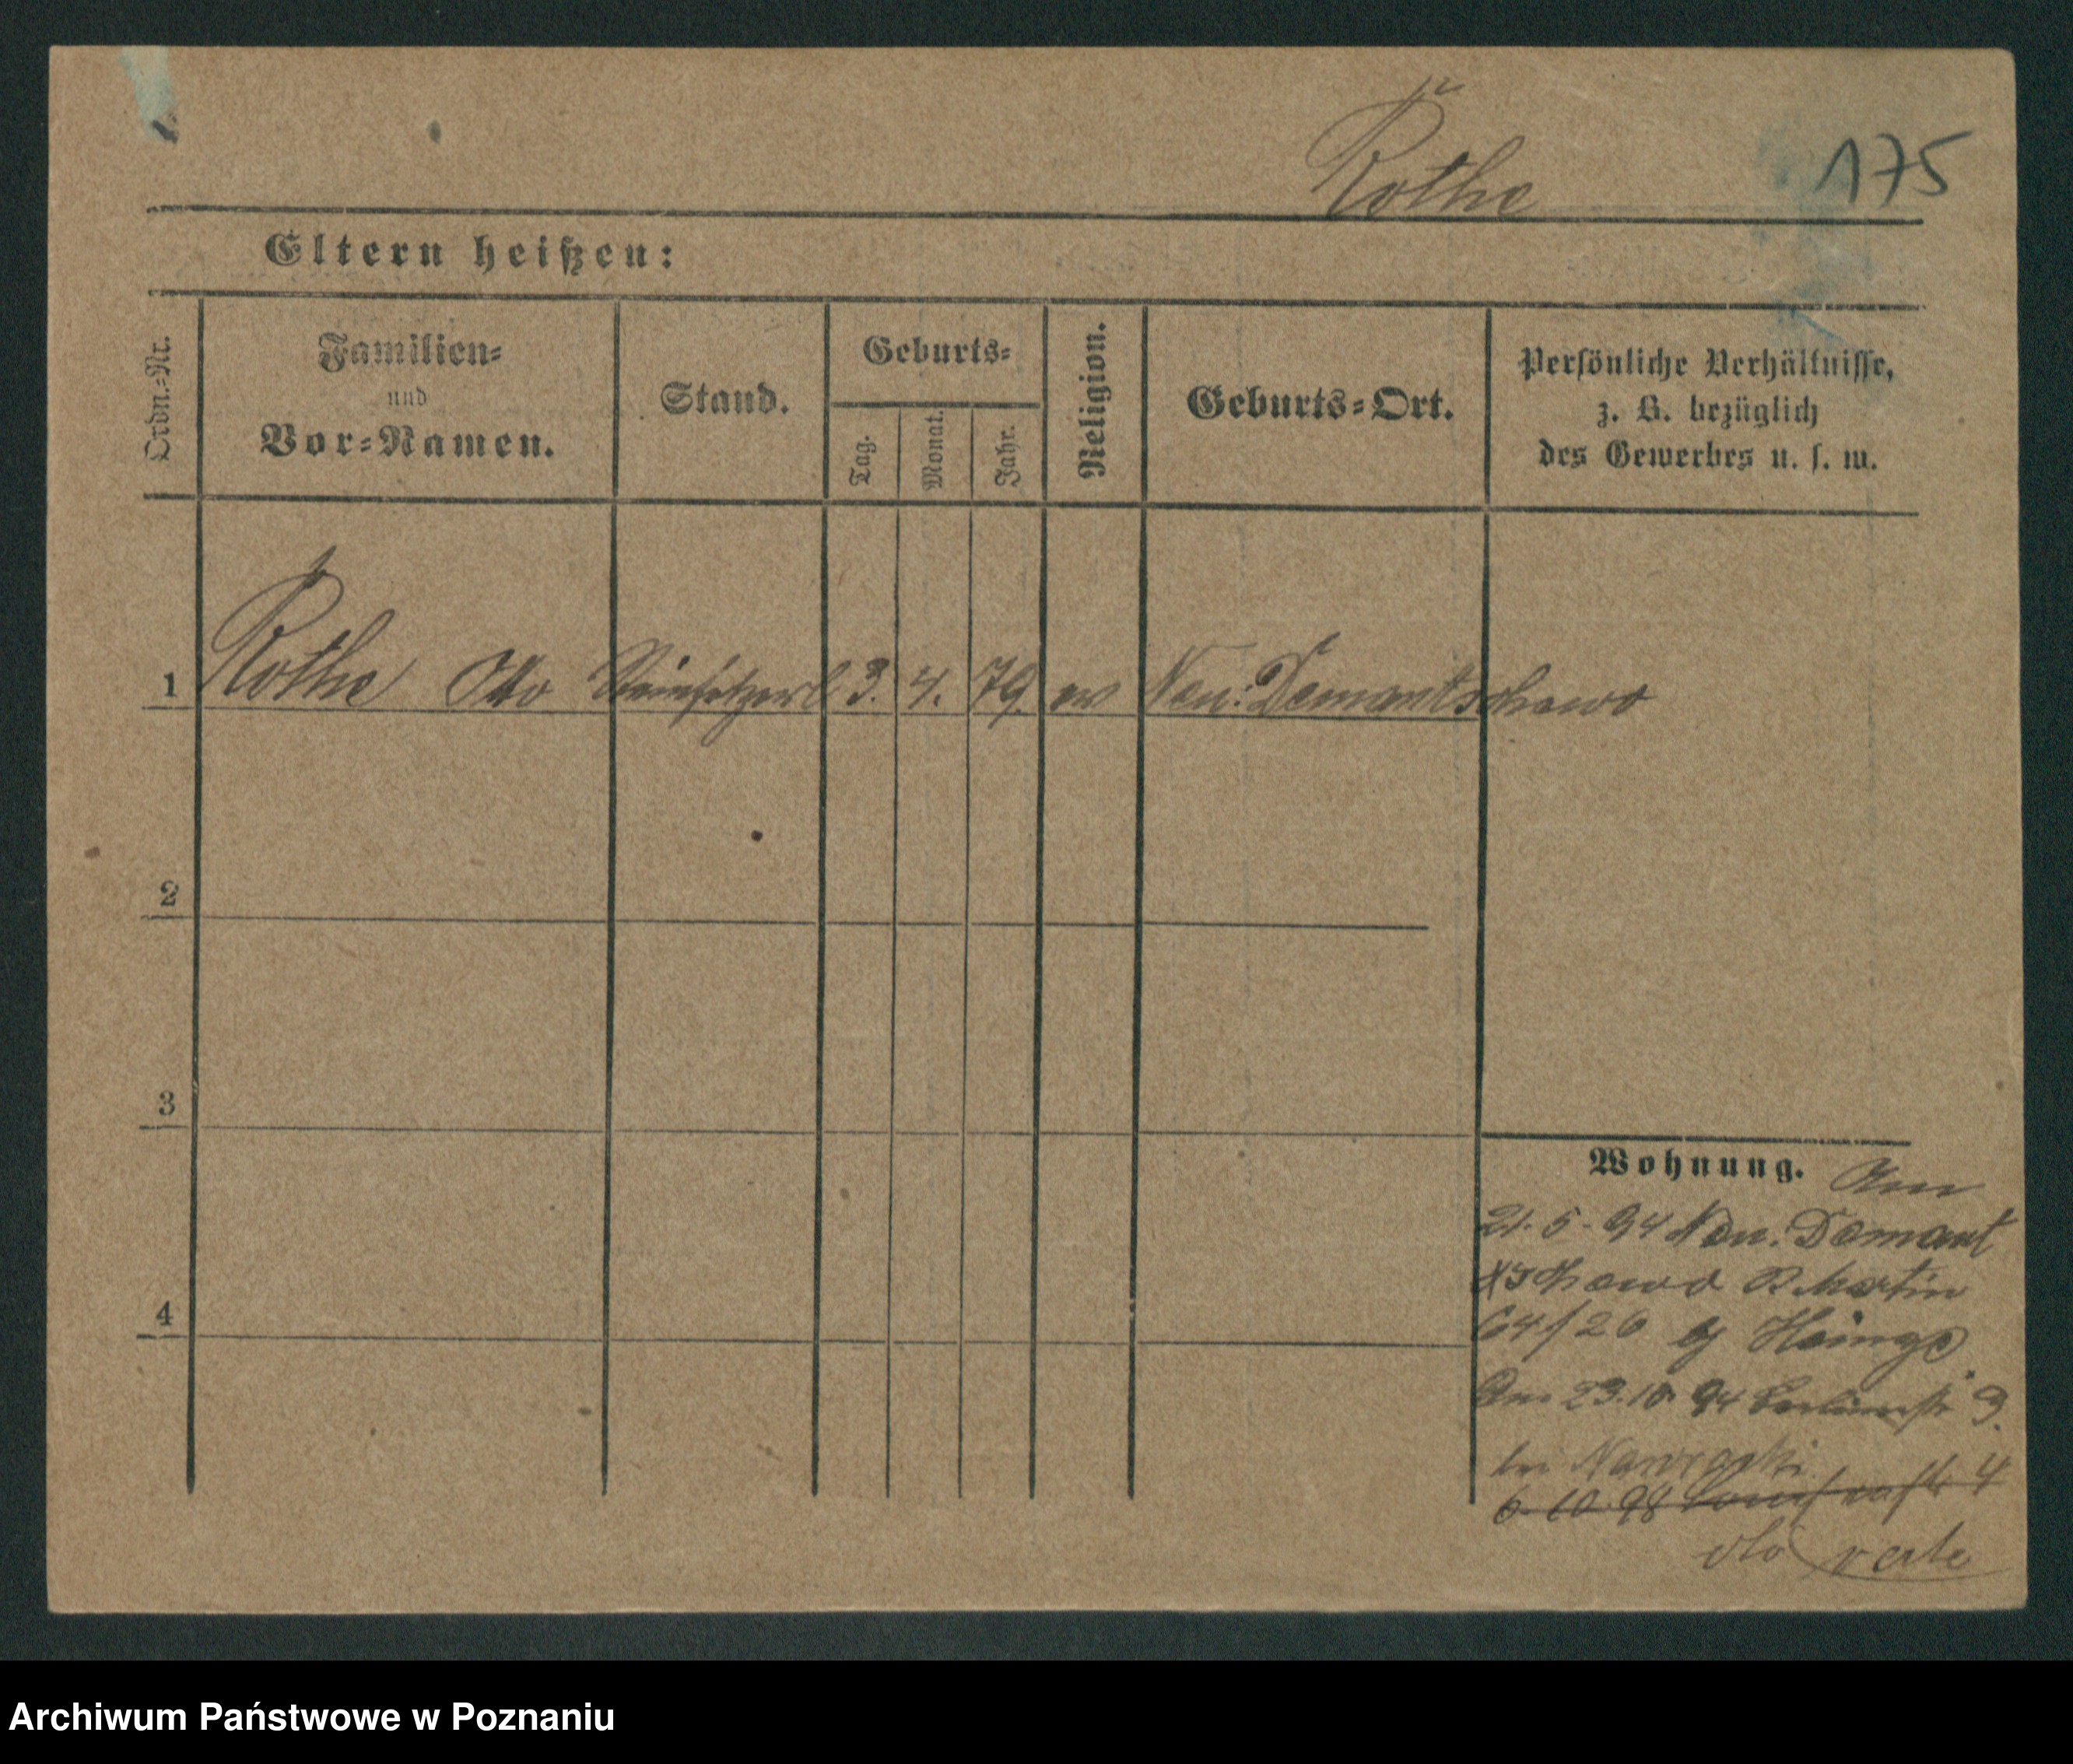 Rothe 175
Eltern heißen:
Ordn.-Nr.
Familien-
und
Vor-Namen.
Stand.
Geburts-
Tag.
Monat.
Jahr.
Religion.
Geburts-Ort.
Persönliche Verhältnisse,
z. B. bezüglich
des Gewerbes u. s. w.
1 Rothe Otto Steinsetzerl 3. 4. 79. ev Neu: Demantschewo
2
3
Wohnung. Am
21. 5. 94 Neu. Demant
schewo St. Martin
4
64/26 Heinze
Am 23.10. 94 3.
bei Nawrocki
6. 10. 98 4
verte
Archiwum Państwowe w Poznaniu